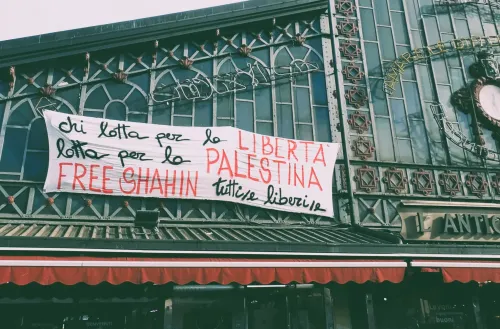 chi lotta per la LIBERTA
lotta per la PALESTINA
FREE SHAHIN tutti e liberi e
L'ANTICO